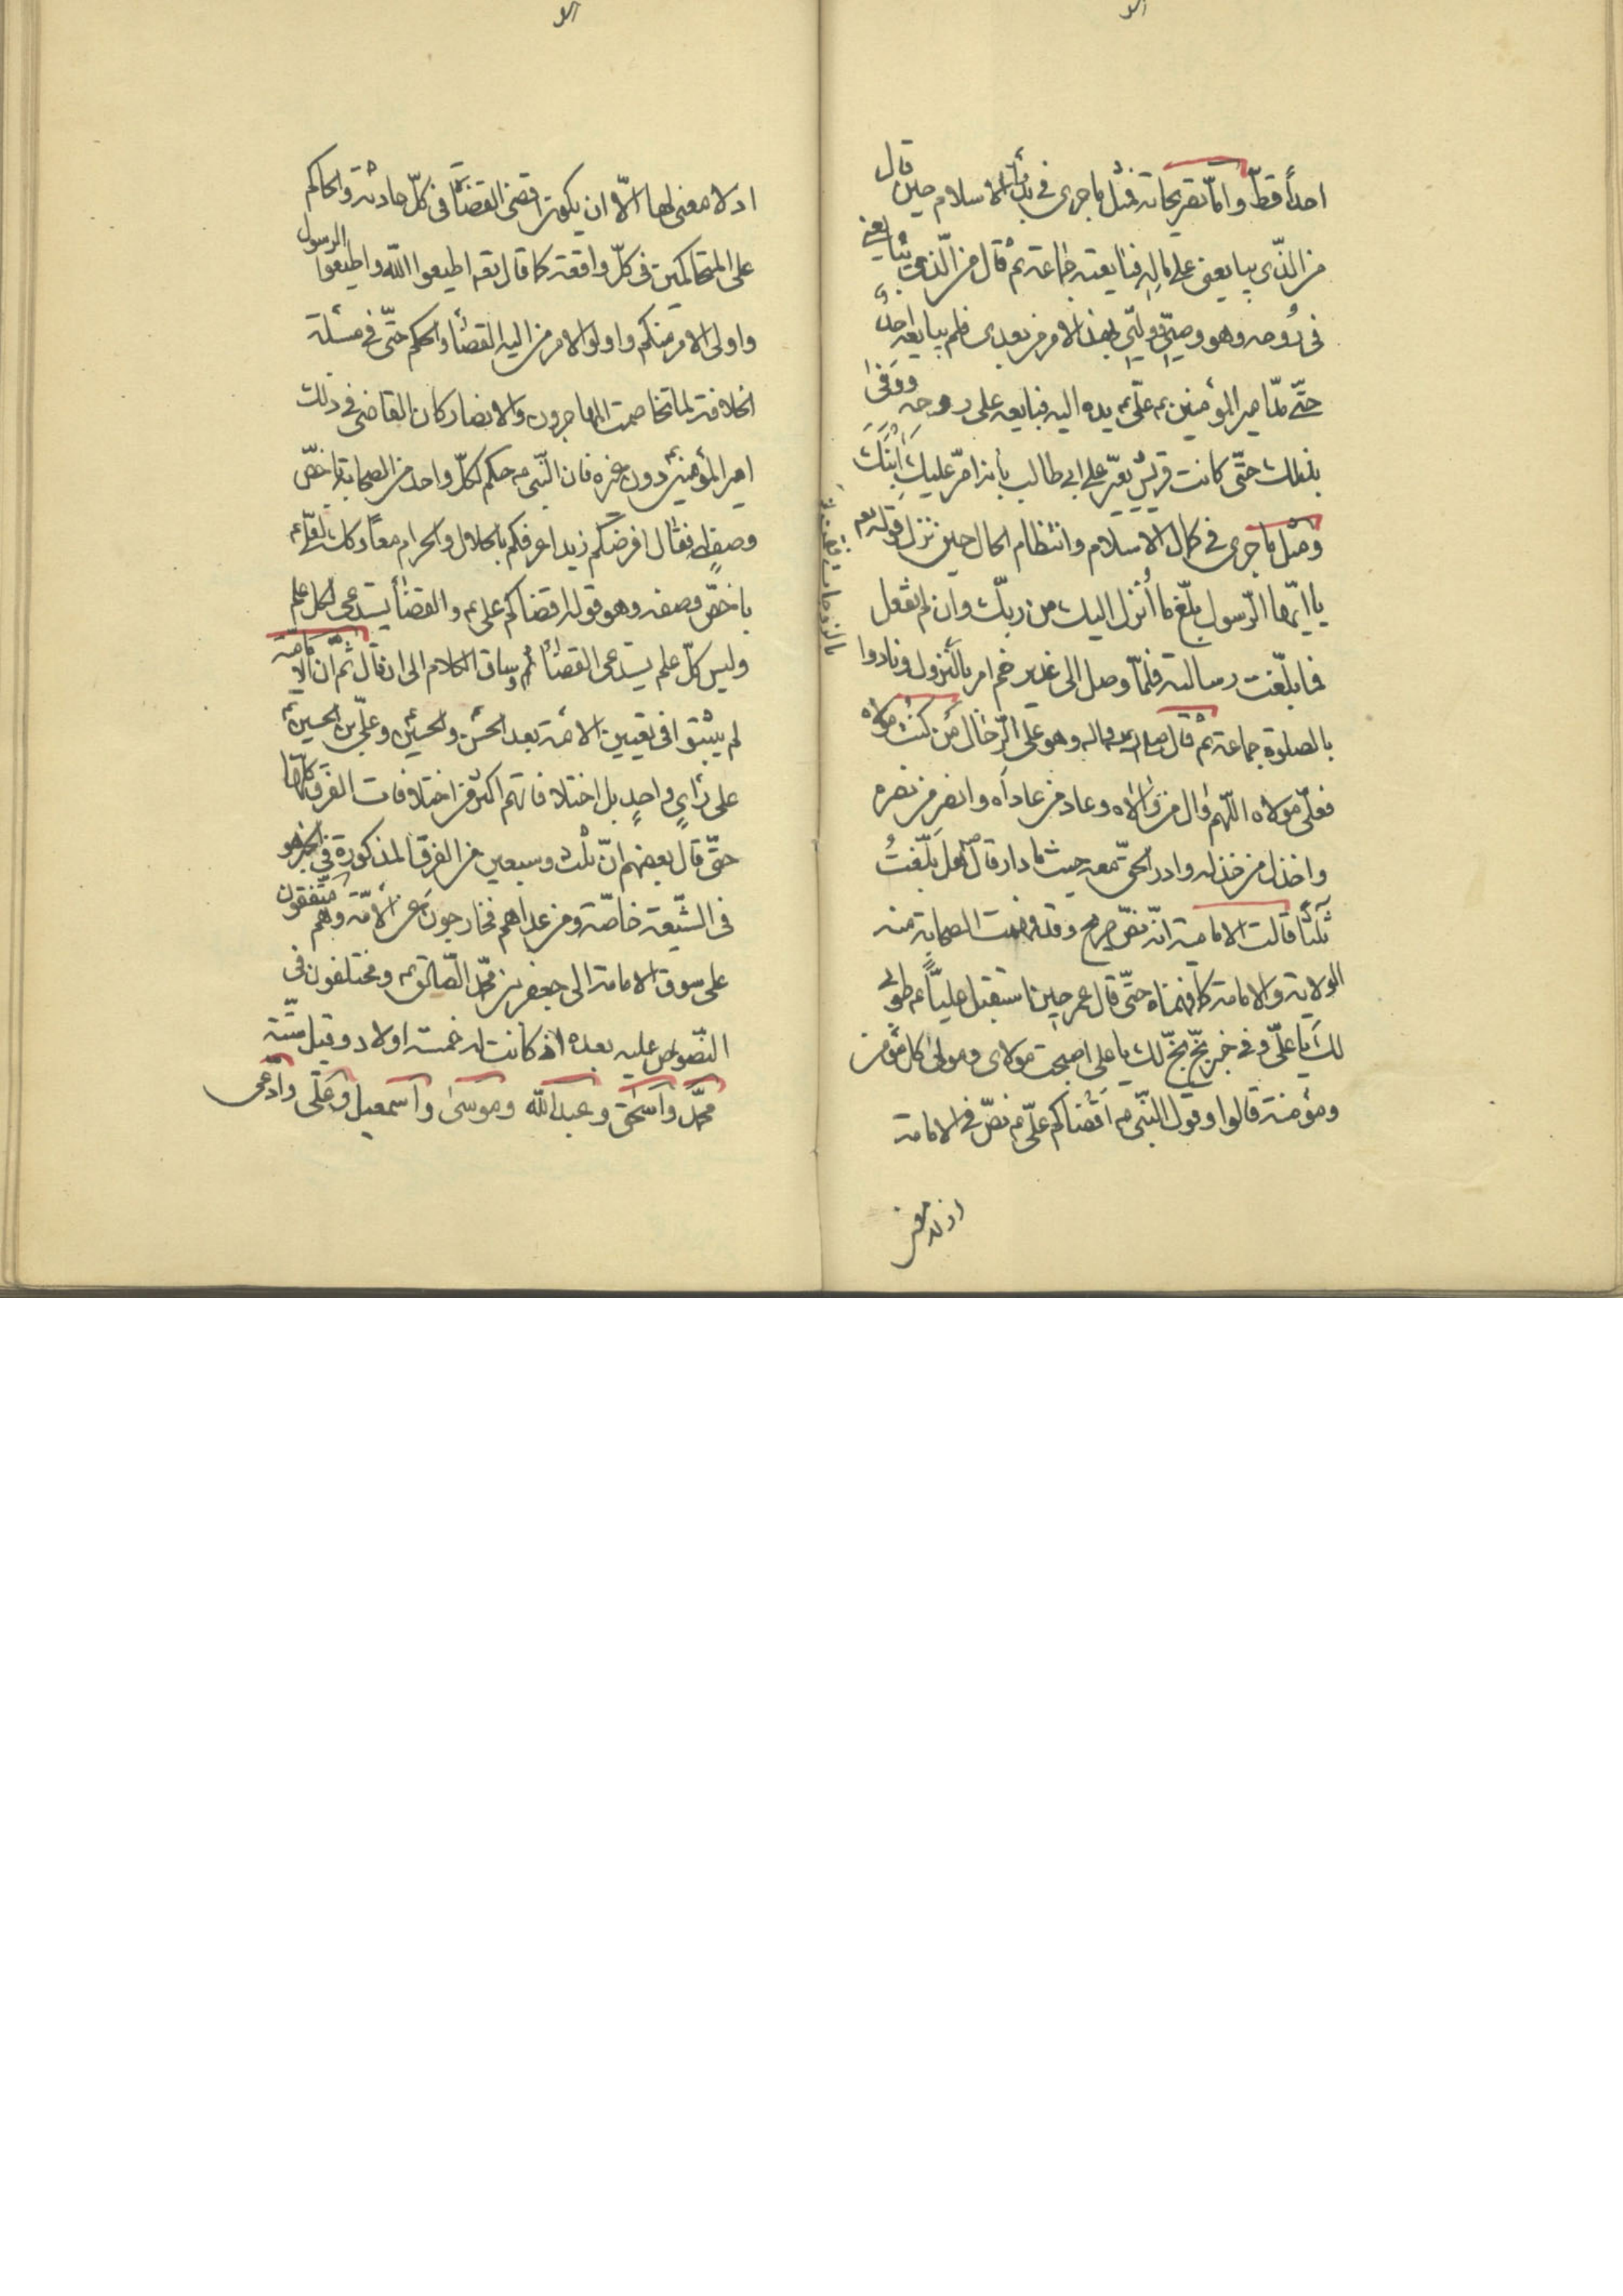 احداً قطّ وامّا تصريحاته فمثل ما جرى فى بدأ الاسلام حين قال
من الذّى يبايعنى على ماله فبايعته جماعة ثم قال من الّذى يبايعنى
فى روحه وهو وصيّى ووليّى بهذا الامر من بعدى فلم يبايعه احد
حتّى مدّ امير المؤمنين ع علىّ ع يده اليه فبايعه على روحه ووفى
بذلك حتّى كانت قريش يعيّر على ابى طالب بأنه امّر عليك ابنك
ومثل ما جرى فى كمال الاسلام وانتظام الحال حين نزل قوله تعم
يا ايّها الرّسول بلّغ ما أُنزل اليك من ربّك وان لم تفعل
فما بلّغت رسالته فلمّا وصل الى غدير خم امر بالنّزول ونادوا
بالصلوة جماعة ثم قال وهو على الرّحال مَن كنتُ مولاه
فعلىّ مولاه اللّهم وال من والاه وعاد من عاداه وانصر من نصره
واخذل من خذله وادر الحقّ معه حيث ما دار قال هل بلّغتُ
ثلثاً قالت الامامية انّه نصّ صريح وقد فهمت الصحابة منه
الولاية والامامة كما فهمناه حتّى قال عمر حين استقبل عليّاً ع طوبى
لك يا علىّ وفى خبر بخّ بخّ لك يا على اصبحت مولاى ومولى كل مؤمن
ومؤمنة قالوا وقول النّبى ص اقضاكم علىّ ع نصّ فى الامامة
اذ لا معنى
اذ لا معنى لها الّا ان يكون اقضى القضاة فى كلّ حادثة والحاكم
على المتحاكمين فى كلّ واقعة كما قال تعم اطيعوا اللّه واطيعوا الرسول
واولى الامر منكم واولوا الامر من اليه القضاء والحكم حتّى فى مسئلة
الخلافة لما تخاصمت المهاجرون والانصار كان القاضى فى ذلك
امير المؤمنين ع دون غيره فان النّبى ص حكم لكلّ واحد من الصحابة باخصّ
وصف له فقال افرضكم زيد اعرفكم بالحلال والحرام معاذ وكذلك لعلىّ ع
باخصّ وصفه وهو قوله اقضاكم على ع والقضاء يستدعى كل علم
وليس كلّ علم يستدعى القضاء ثم وساق الكلام الى ان قال ثمّ انّ الامامية
لم يثبتوا فى تعيين الائمة بعد الحسن والحسين ع وعلىّ بن الحسين ع
على رأىٍ واحدٍ بل اختلافاتهم اكثر من اختلافات الفرق كلّها
حتّى قال بعضهم انّ ثلث وسبعين من الفرق المذكورة فى الخبر هو
فى الشّيعة خاصّة ومن عداهم فخارجون عن الأمّة وهم متّفقون
على سوق الامامة الى جعفر بن محمّد الصّادق ع ومختلفون فى
النّصوص عليه بعده اذ كانت له خمسة اولاد وقيل ستّة
محمّد واسحٰق وعبد اللّه وموسىٰ واسمعيل وعلّى وادّعى